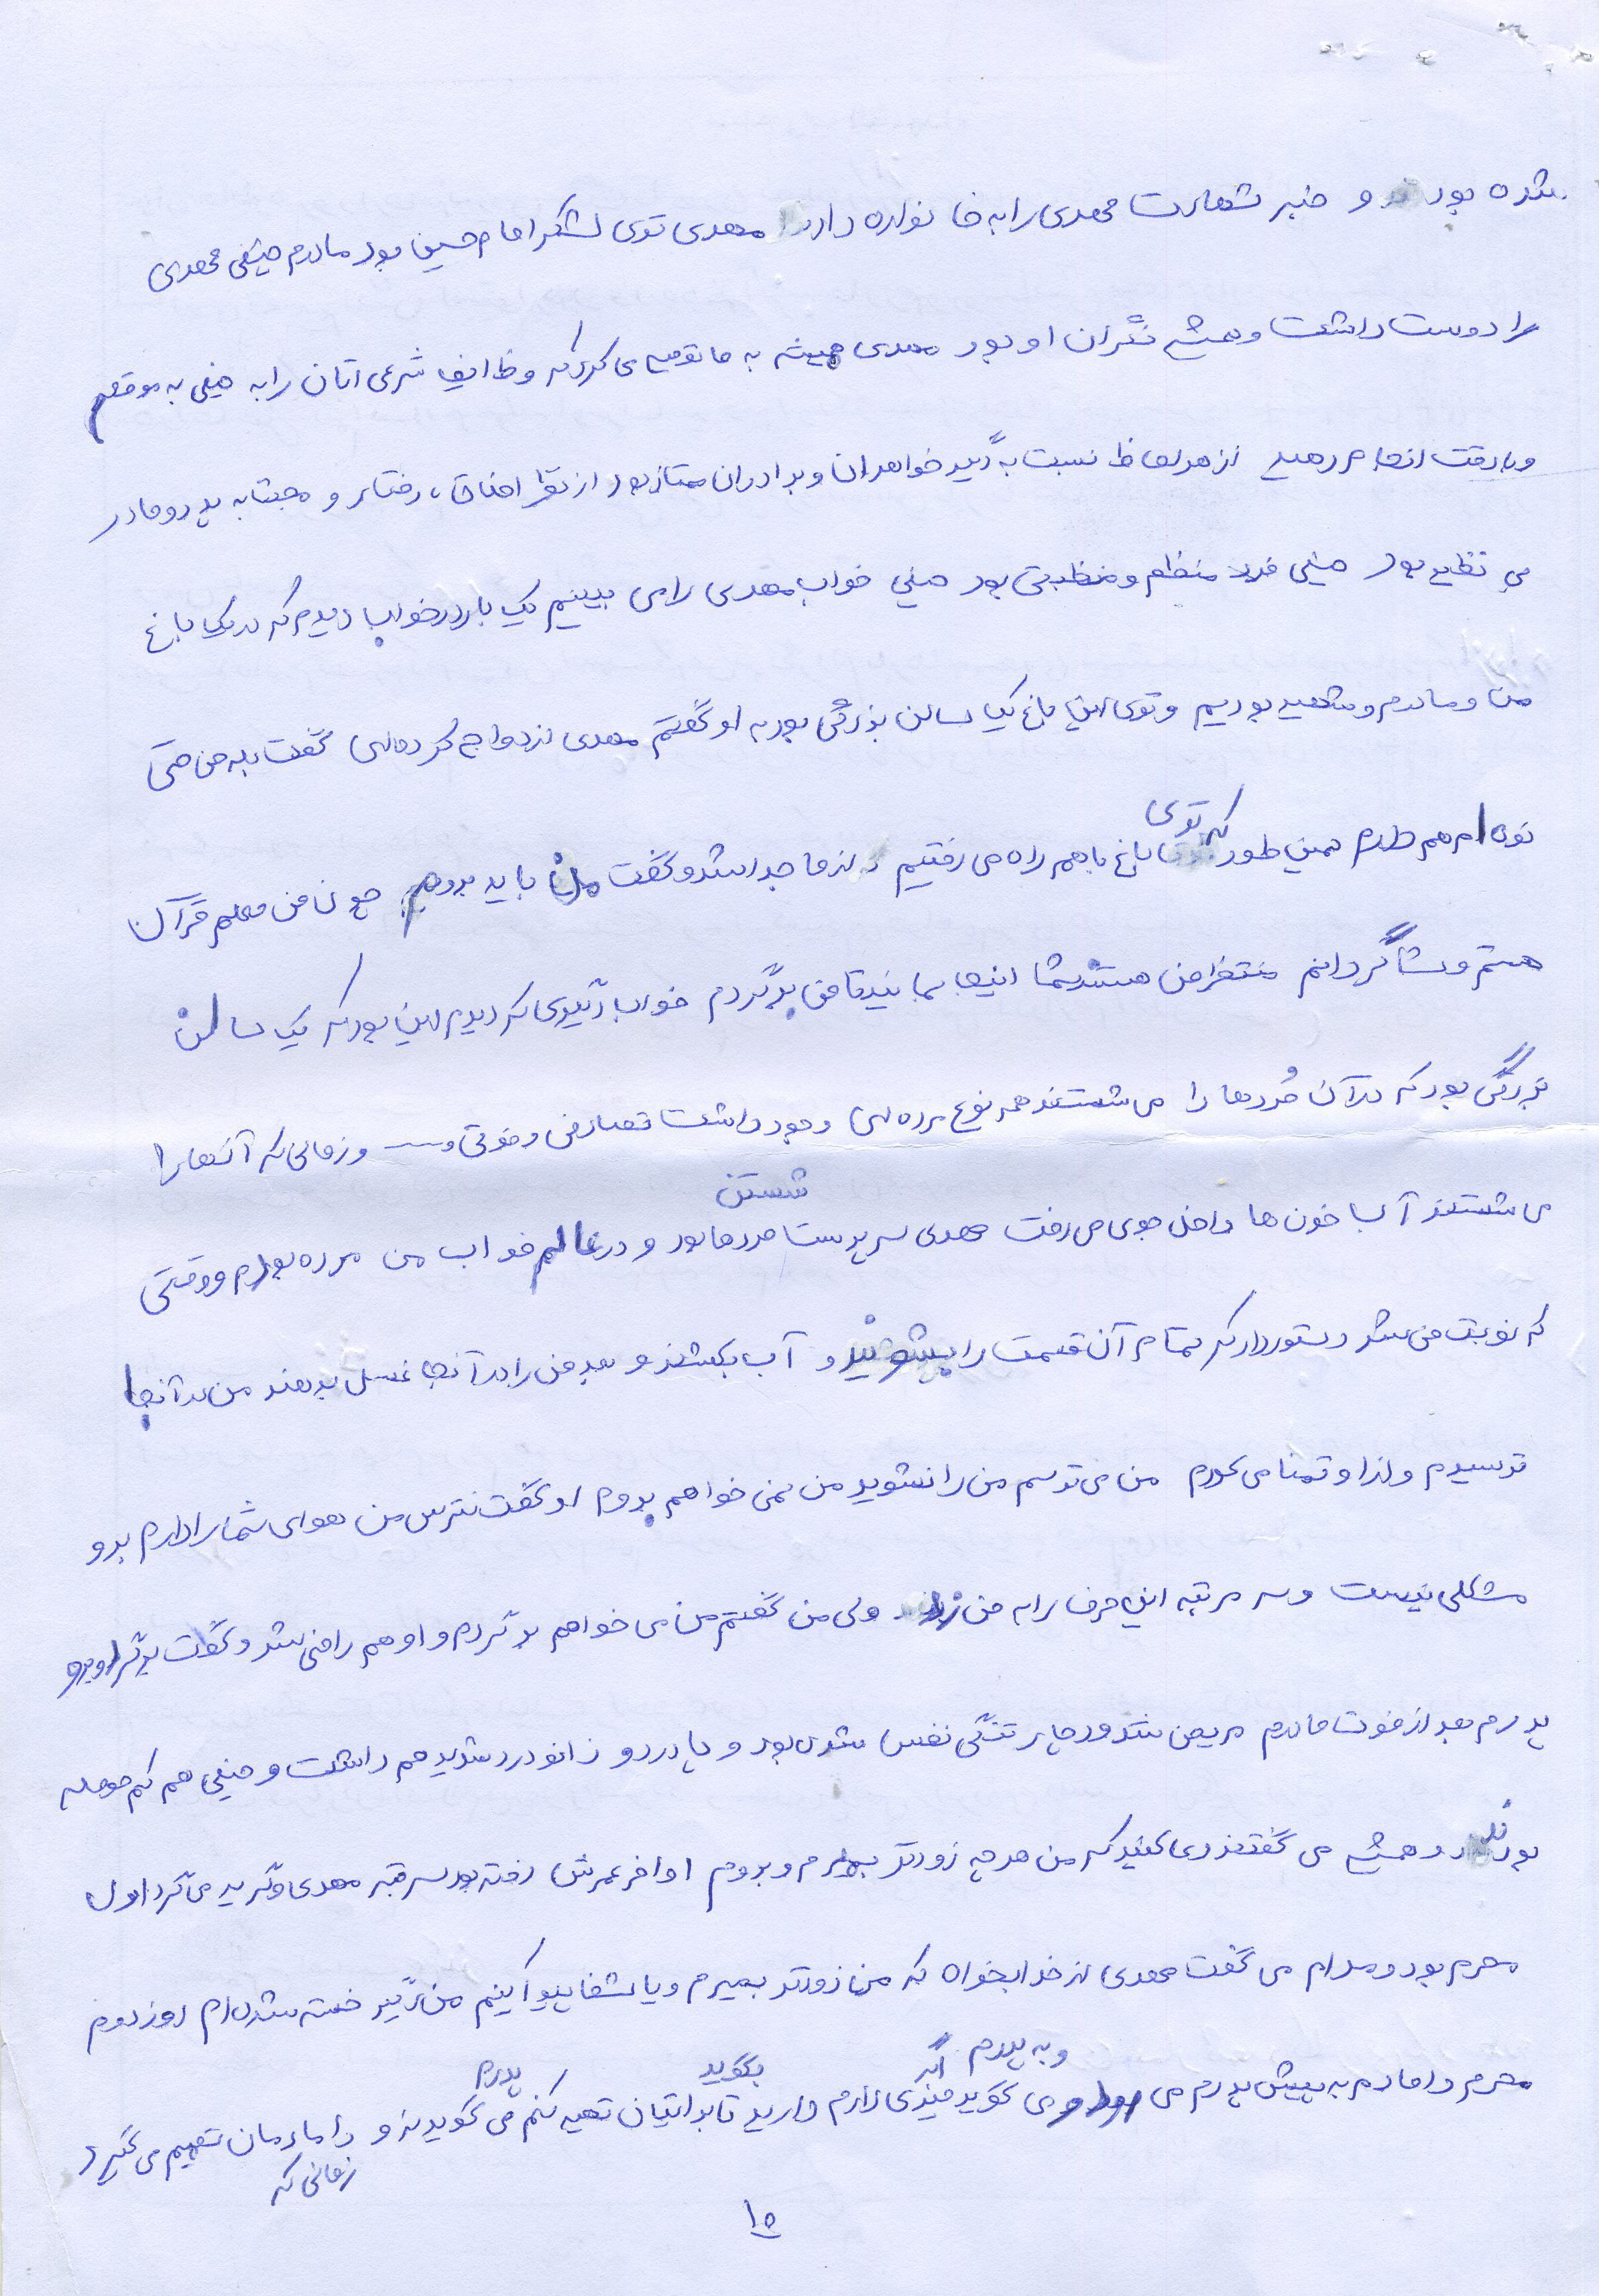 شده بود و خبر شهادت مهدی را به خانواده داد مهدی توی لشگر امام حسین بود مادرم خیلی مهدی
را دوست داشت و همیشه نگران او بود مهدی همیشه به ما توصیه می کرد که وظایف شرعی اتان را به خیلی به موقع
و با دقت انجام دهید از هر لحاظ نسبت به دیگر خواهران و برادران ممتاز بود از نظر اخلاق، رفتار و محبت به پدر و مادر
بی نظیر بود خیلی فرد منظم و منظبتی بود خیلی خواب مهدی را می بینیم یک بار در خواب دیدم که در یک باغ
من و مادرم و شهید بودیم و توی این باغ یک سالن بزرگی بود به او گفتم مهدی ازدواج کرده ای گفت بله من حتی
نوه ام هم دارم همین طور که توی باغ با هم راه می رفتیم از ما جدا شد و گفت من باید بروم چون من معلم قرآن
هستم و شاگردانم منتظر من هستند شما اینجا بمانید تا من برگردم خواب دیگری که دیدم این بود که یک سالن
بزرگی بود که در آن مُرده ها را می شستند همه نوع مرده ای وجود داشت تصادفی و فوتی و ... و زمانی که آنها را
می شستند آب خون ها داخل جوی می رفت مهدی سرپرست شستن مرده ها بود و در عالم خواب من مرده بودم و وقتی
که نوبت من شد دستور داد که تمام آن قسمت را بشویند و آب بکشند و بعد من را در آنجا غسل بدهند من در آنجا
ترسیدم و از او تمنا می کردم من می ترسم من را نشوید من نمی خواهم بروم او گفت نترس من هوای شما را دارم برو
مشکلی نیست و سه مرتبه این حرف را به من زد ولی من گفتم من می خواهم برگردم و او هم راضی شد و گفت برگرد و برو
پدرم بعد از فوت مادرم مریض شد و دچار تنگی نفس شدی بود و پا درد و زانو درد شدید هم داشت و خیلی هم کم حوصله
بودند و همیشه می گفتند دعا کنید که من هر چه زودتر بمیرم و بروم اواخر عمرش رفته بود سر قبر مهدی و گریه می کرد اول
محرم بود و مدام می گفت مهدی از خدا بخواه که من زودتر بمیرم و یا شفا پیدا کنم من دیگر خسته شده ام روز دوم
محرم دامادم به پیش پدرم می رود و به پدرم می گوید اگر چیزی لازم دارید بگوید تا برایتان تهیه کنم پدرم می گوید نه و زمانی که دامادمان تصمیم می گیرد
۱۵